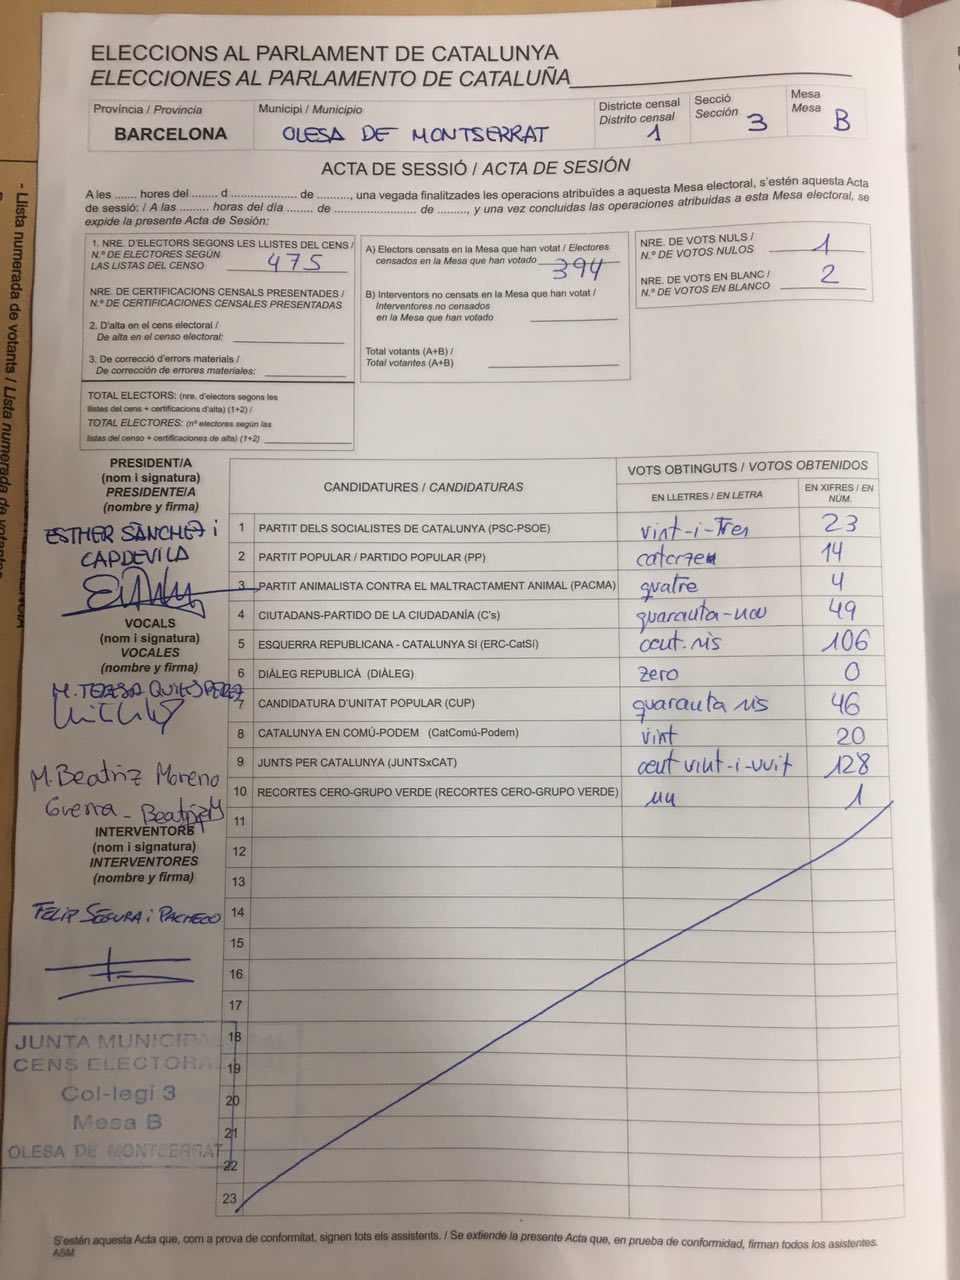 ELECCIONS AL PARLAMENT DE CATALUNYA
ELECCIONES AL PARLAMENTO DE CATALUÑA
Província / Provincia
BARCELONA
Municipi / Municipio
OLESA DE MONTSERRAT
Districte censal
Distrito censal
1
Secció
Sección
3
Mesa
Mesa
B
ACTA DE SESSIÓ / ACTA DE SESIÓN
A les ....... hores del ........ d .................... de .........., una vegada finalitzades les operacions atribuïdes a aquesta Mesa electoral, s'estén aquesta Acta
de sessió: / A las ......... horas del día ........ de ......................... de ........., y una vez concluidas las operaciones atribuidas a esta Mesa electoral, se
expide la presente Acta de Sesión:
1. NRE. D'ELECTORS SEGONS LES LLISTES DEL CENS /
N.º DE ELECTORES SEGÚN
LAS LISTAS DEL CENSO 475
NRE. DE CERTIFICACIONS CENSALS PRESENTADES /
N.º DE CERTIFICACIONES CENSALES PRESENTADAS
2. D'alta en el cens electoral /
De alta en el censo electoral:
3. De correcció d'errors materials /
De corrección de errores materiales:
TOTAL ELECTORS: (nre. d'electors segons les
llistes del cens + certificacions d'alta) (1+2) /
TOTAL ELECTORES: (nº electores según las
listas del censo + certificaciones de alta) (1+2)
A) Electors censats en la Mesa que han votat / Electores
censados en la Mesa que han votado 394
B) Interventors no censats en la Mesa que han votat /
Interventores no censados
en la Mesa que han votado
Total votants (A+B) /
Total votantes (A+B)
NRE. DE VOTS NULS /
N.º DE VOTOS NULOS 1
NRE. DE VOTS EN BLANC /
N.º DE VOTOS EN BLANCO 2
PRESIDENT/A
(nom i signatura)
PRESIDENTE/A
(nombre y firma)
ESTHER SÀNCHEZ i
CAPDEVILA
VOCALS
(nom i signatura)
VOCALES
(nombre y firma)
M. TERESA QUILES PEREZ
M. Beatriz Moreno
Guerra - Beatriz M
INTERVENTORS
(nom i signatura)
INTERVENTORES
(nombre y firma)
FELIP SEGURA i PACHECO
JUNTA MUNICIPAL
CENS ELECTORAL
Col-legi 3
Mesa B
OLESA DE MONTSERRAT
CANDIDATURES / CANDIDATURAS
VOTS OBTINGUTS / VOTOS OBTENIDOS
EN LLETRES / EN LETRA
EN XIFRES / EN
NÚM.
1 PARTIT DELS SOCIALISTES DE CATALUNYA (PSC-PSOE) vint-i-Tres 23
2 PARTIT POPULAR / PARTIDO POPULAR (PP) catorze 14
3 PARTIT ANIMALISTA CONTRA EL MALTRACTAMENT ANIMAL (PACMA) quatre 4
4 CIUTADANS-PARTIDO DE LA CIUDADANÍA (C's) quaranta-nou 49
5 ESQUERRA REPUBLICANA - CATALUNYA SI (ERC-CatSí) cent sis 106
6 DIÀLEG REPUBLICÀ (DIÀLEG) zero 0
7 CANDIDATURA D'UNITAT POPULAR (CUP) quaranta sis 46
8 CATALUNYA EN COMÚ-PODEM (CatComú-Podem) vint 20
9 JUNTS PER CATALUNYA (JUNTSxCAT) cent vint-i-vuit 128
10 RECORTES CERO-GRUPO VERDE (RECORTES CERO-GRUPO VERDE) un 1
11
12
13
14
15
16
17
18
19
20
21
22
23
S'estén aquesta Acta que, com a prova de conformitat, signen tots els assistents. / Se extiende la presente Acta que, en prueba de conformidad, firman todos los asistentes.
ASM
- Llista numerada de votants / Lista numerada de votantes